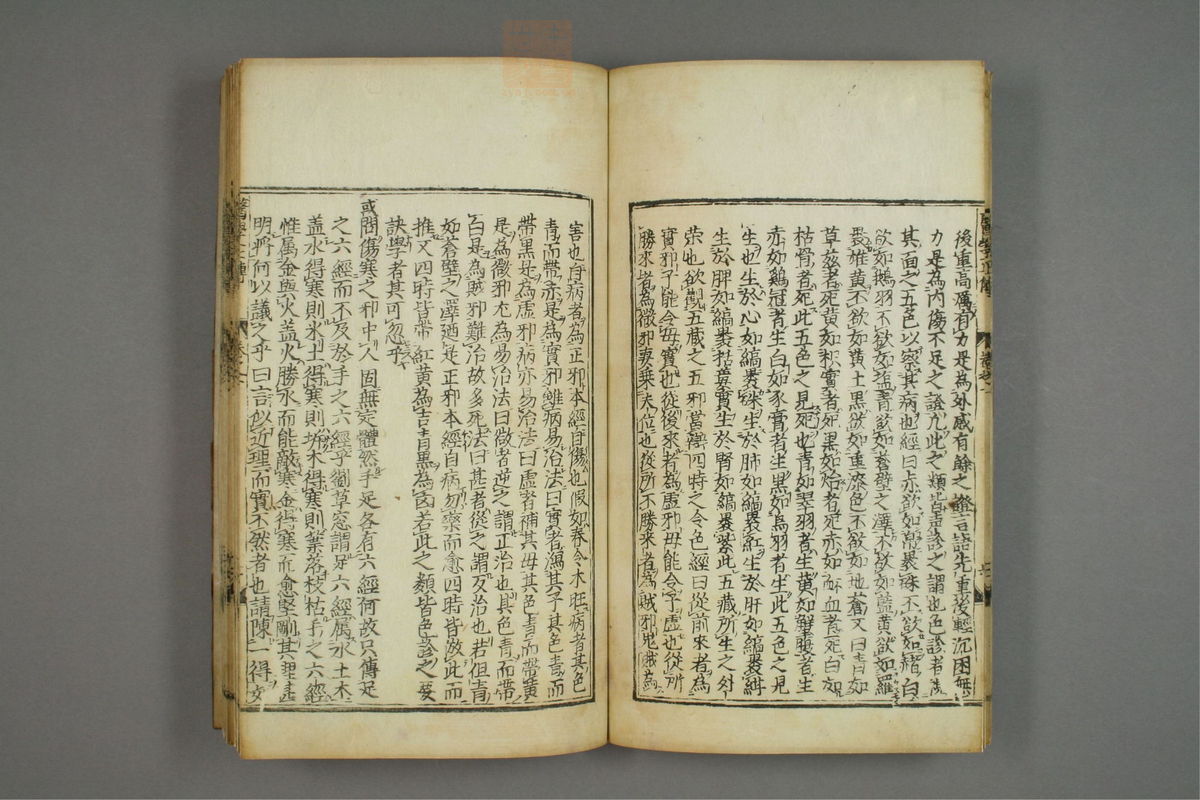 後重高厲有力是為外感有餘之證言語先重後輕沉困無
力是為内傷不足之證凡此之類皆聲診之謂也色診者
其面之五色以察其病也經曰赤欲如帛裹硃不欲如赭白
欲如鵝羽不欲如鹽青欲如蒼璧之澤不欲如藍黄欲如羅
裹雄黄不欲如黄土黒欲如重漆色不欲如地蒼又曰青如
草茲者死黄如枳實者死黒如炲者死赤如衃血者死白如
枯骨者死此五色之見死也青如翠羽者生黄如蟹腹者生
赤如鷄冠者生白如豕膏者生黒如烏羽者生此五色之見
生也生於心如縞裹硃生於肺如縞裹紅生於肝如縞裹紺
生於脾如縞裹栝蔞實生於腎如縞裹紫此五藏所生之外
荣也欲觀五蔵之五邪當辯四時之令色經曰從前來者為
實邪子能令母實也從後來者為虚邪母能令子虚也從所
勝來者為微邪妻乗夫位也從所不勝來者為賊邪鬼賊為
害也自病者為正邪本經自傷也假如春令木旺病者其色
青而帶赤是為實邪雖病易治法曰實者瀉其子其色青而
帶黒是為虚邪病亦易治法曰虚者補其母其色青而帶黄
是為微邪尤為易治法曰微者逆之謂正治也其色青而帶
白是為賊邪難治故多死法曰甚者從之謂反治也若但青
如蒼璧之澤廼是正邪本經自病勿藥而愈四時皆倣此而
推又四時皆帶紅黄為吉青黒為凶若此之類皆色診之要
訣學者其可忽乎
或問傷寒之邪中人固無定體然手足各有六經何故只傳足
之六經而不及於手之六經乎劉草窓謂足六經属水土木
盖水得寒則氷土得寒則坼木得寒則葉落枝枯手之六經
惟属金與火盖火勝水而能敵寒金得寒而愈堅剛其理
明將何以議之乎曰言似近理而實不然者也請陳一得